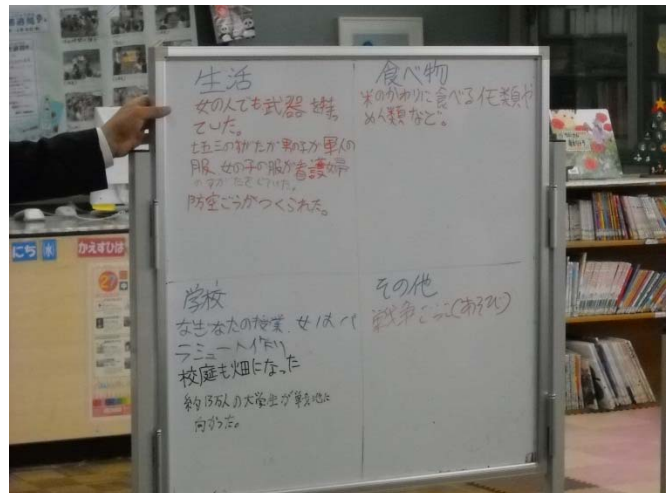 生活
女の人でも武器を持っ
ていた。
七五三のすがたが男の子が軍人の
服、女の子の服が看護婦
のすがたをしていた。
防空ごうがつくられた。
食べ物
米のかわりに食べるイモ類や
めん類など。
学校
なぎなたの授業、女はパ
ラシュート作り
校庭も畑になった
約13万人の大学生が戦地に
向かった。
その他
戦争ごっこ(あそび)
にち
水
かえすひは
27